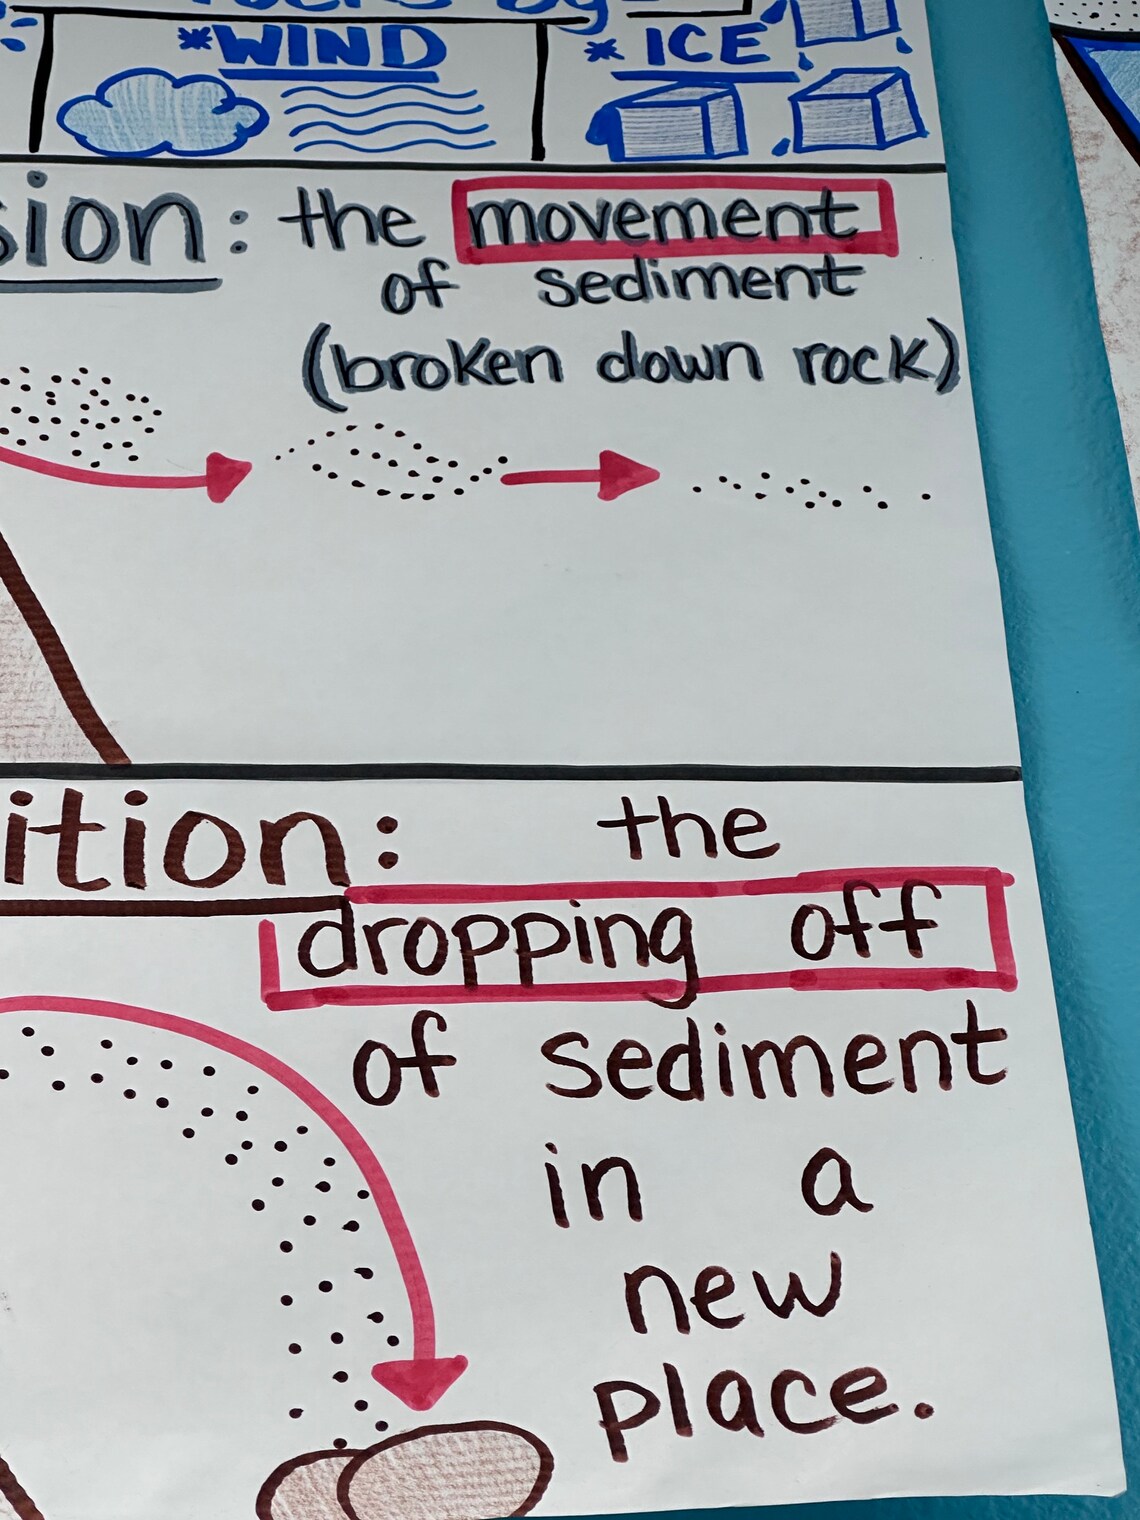 rocks by
*WIND
*ICE
sion: the movement
of sediment
(broken down rock)
ition: the
dropping off
of sediment
in a
new
place.